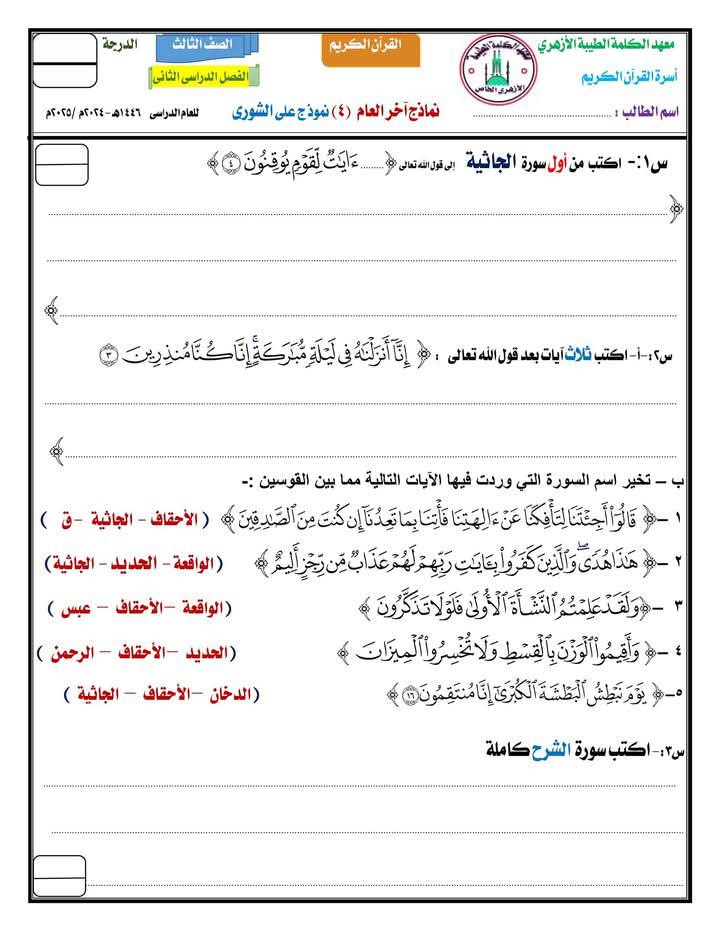 معهد الكلمة الطيبة الأزهري
القرآن الكريم
الصف الثالث
الدرجة
أسرة القرآن الكريم
الفصل الدراسى الثانى
اسم الطالب : ........................
نماذج آخر العام (٤) نموذج على الشورى
للعام الدراسى ١٤٤٦هـ -٢٠٢٤م /٢٠٢٥م
س١:- اكتب من أول سورة الجاثية إلى قول الله تعالى ﴿ ......... ءَايَٰتٌ لِّقَوْمٍ يُوقِنُونَ ٤ ﴾
س٢:-أ- اكتب ثلاث آيات بعد قول الله تعالى : ﴿ إِنَّآ أَنزَلْنَٰهُ فِى لَيْلَةٍ مُّبَٰرَكَةٍ ۚ إِنَّا كُنَّا مُنذِرِينَ ٣
ب – تخير اسم السورة التي وردت فيها الآيات التالية مما بين القوسين :-
١ –﴿ قَالُوٓا۟ أَجِئْتَنَا لِتَأْفِكَنَا عَنْ ءَالِهَتِنَا فَأْتِنَا بِمَا تَعِدُنَآ إِن كُنتَ مِنَ ٱلصَّٰدِقِينَ ﴾ ( الأحقاف – الجاثية –ق )
٢ –﴿ هَٰذَا هُدًى ۖ وَٱلَّذِينَ كَفَرُوا۟ بِـَٔايَٰتِ رَبِّهِمْ لَهُمْ عَذَابٌ مِّن رِّجْزٍ أَلِيمٌ ﴾ (الواقعة- الحديد – الجاثية)
٣ –﴿ وَلَقَدْ عَلِمْتُمُ ٱلنَّشْأَةَ ٱلْأُولَىٰ فَلَوْلَا تَذَكَّرُونَ ﴾ (الواقعة –الأحقاف – عبس )
٤ –﴿ وَأَقِيمُوا۟ ٱلْوَزْنَ بِٱلْقِسْطِ وَلَا تُخْسِرُوا۟ ٱلْمِيزَانَ ﴾ (الحديد –الأحقاف – الرحمن )
٥–﴿ يَوْمَ نَبْطِشُ ٱلْبَطْشَةَ ٱلْكُبْرَىٰٓ إِنَّا مُنتَقِمُونَ ١٦ ﴾ (الدخان –الأحقاف – الجاثية )
س٣:-اكتب سورة الشرح كاملة